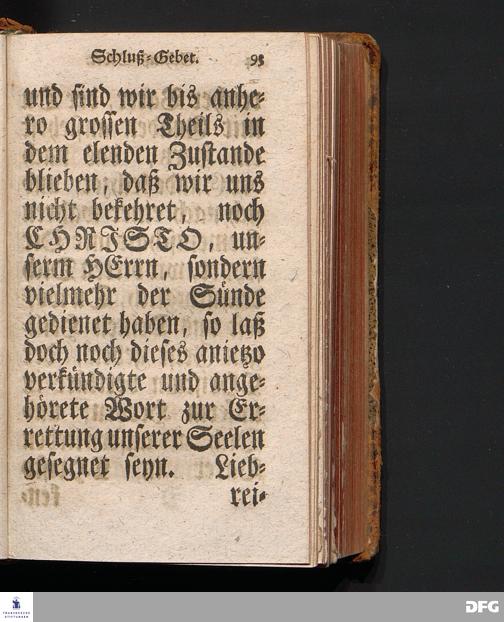 Schluß-Gebet. 93
und sind wir bis anhe-
ro grossen Theils in
dem elenden Zustande
blieben, daß wir uns
nicht bekehret, noch
CHRISTO, un-
serm HErrn, sondern
vielmehr der Sünde
gedienet haben, so laß
doch noch dieses anietzo
verkündigte und ange-
hörete Wort zur Er-
rettung unserer Seelen
gesegnet seyn. Lieb-
rei-
FRANCKESCHE
STIFTUNGEN
DFG